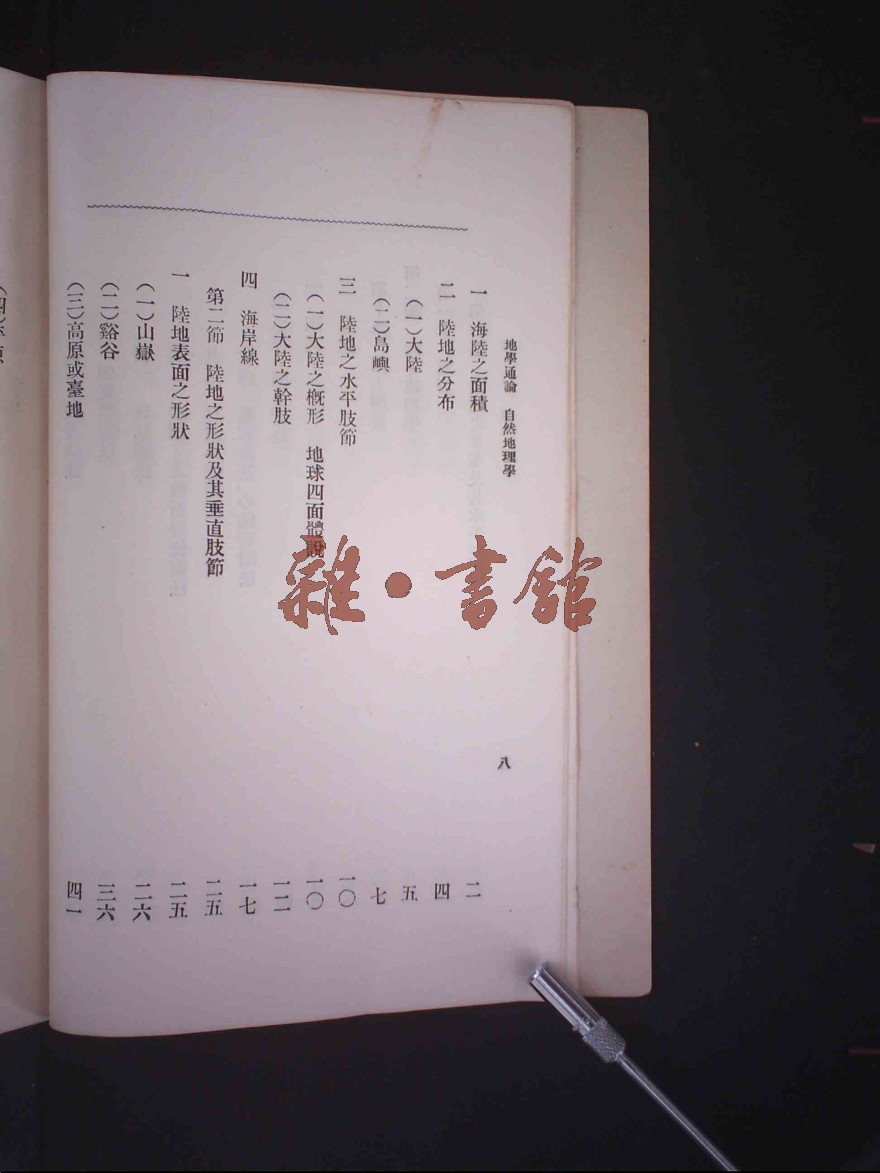 地學通論 自然地理學 八
一 海陸之面積 二
二 陸地之分布 四
(一)大陸 五
(二)島嶼 七
三 陸地之水平肢節 一〇
(一)大陸之槪形 地球四面體說 一〇
(二)大陸之幹肢 一二
四 海岸線 一七
第二節 陸地之形狀及其垂直肢節 二五
一 陸地表面之形狀 二五
(一)山嶽 二六
(二)谿谷 三六
(三)高原或臺地 四一
雜·書館